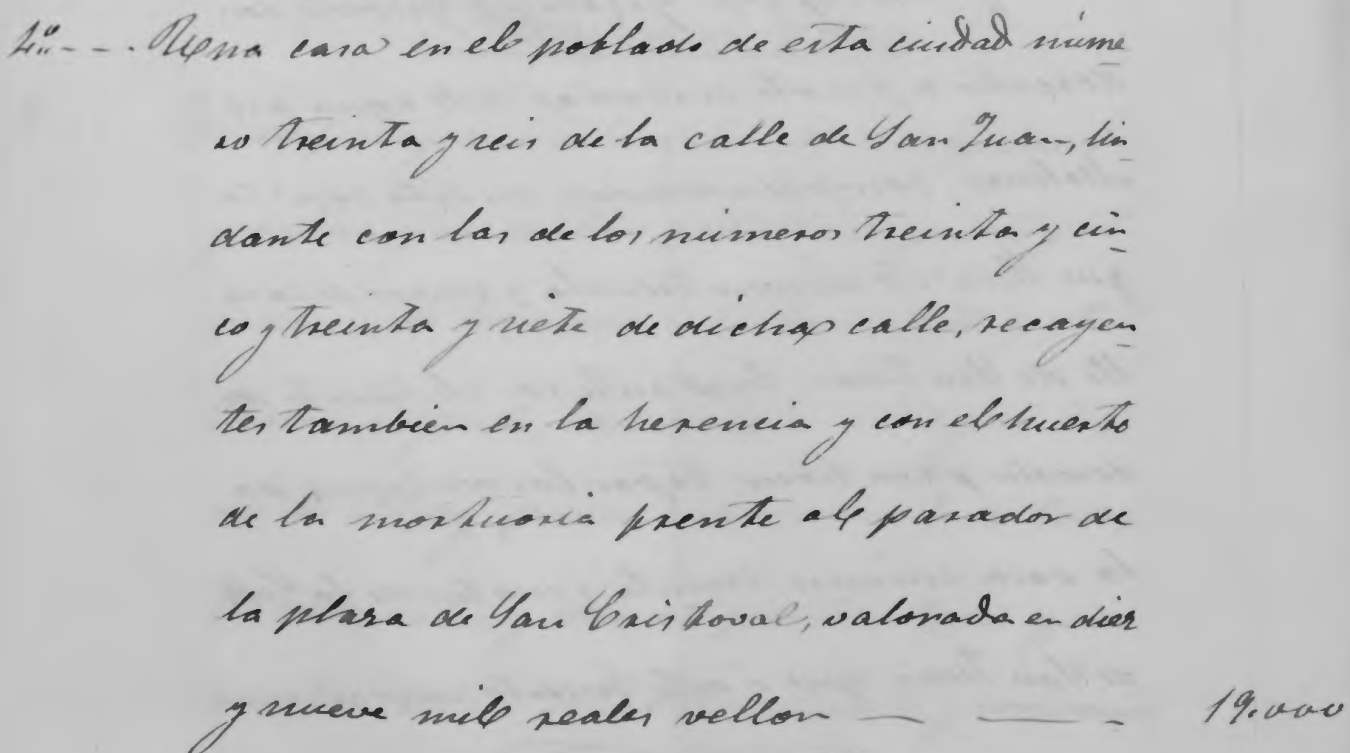 4º - - - Una casa en el poblado de esta ciudad núme
ro treinta y seis de la calle de San Juan, lin
dante con las de los números treinta y cin
co y treinta y siete de dicha calle, recayen
tes tambien en la herencia y con el huerto
de la mortuoria frente al parador de
la plaza de San Cristoval, valorada en diez
y nueve mil reales vellon — — - 19.000